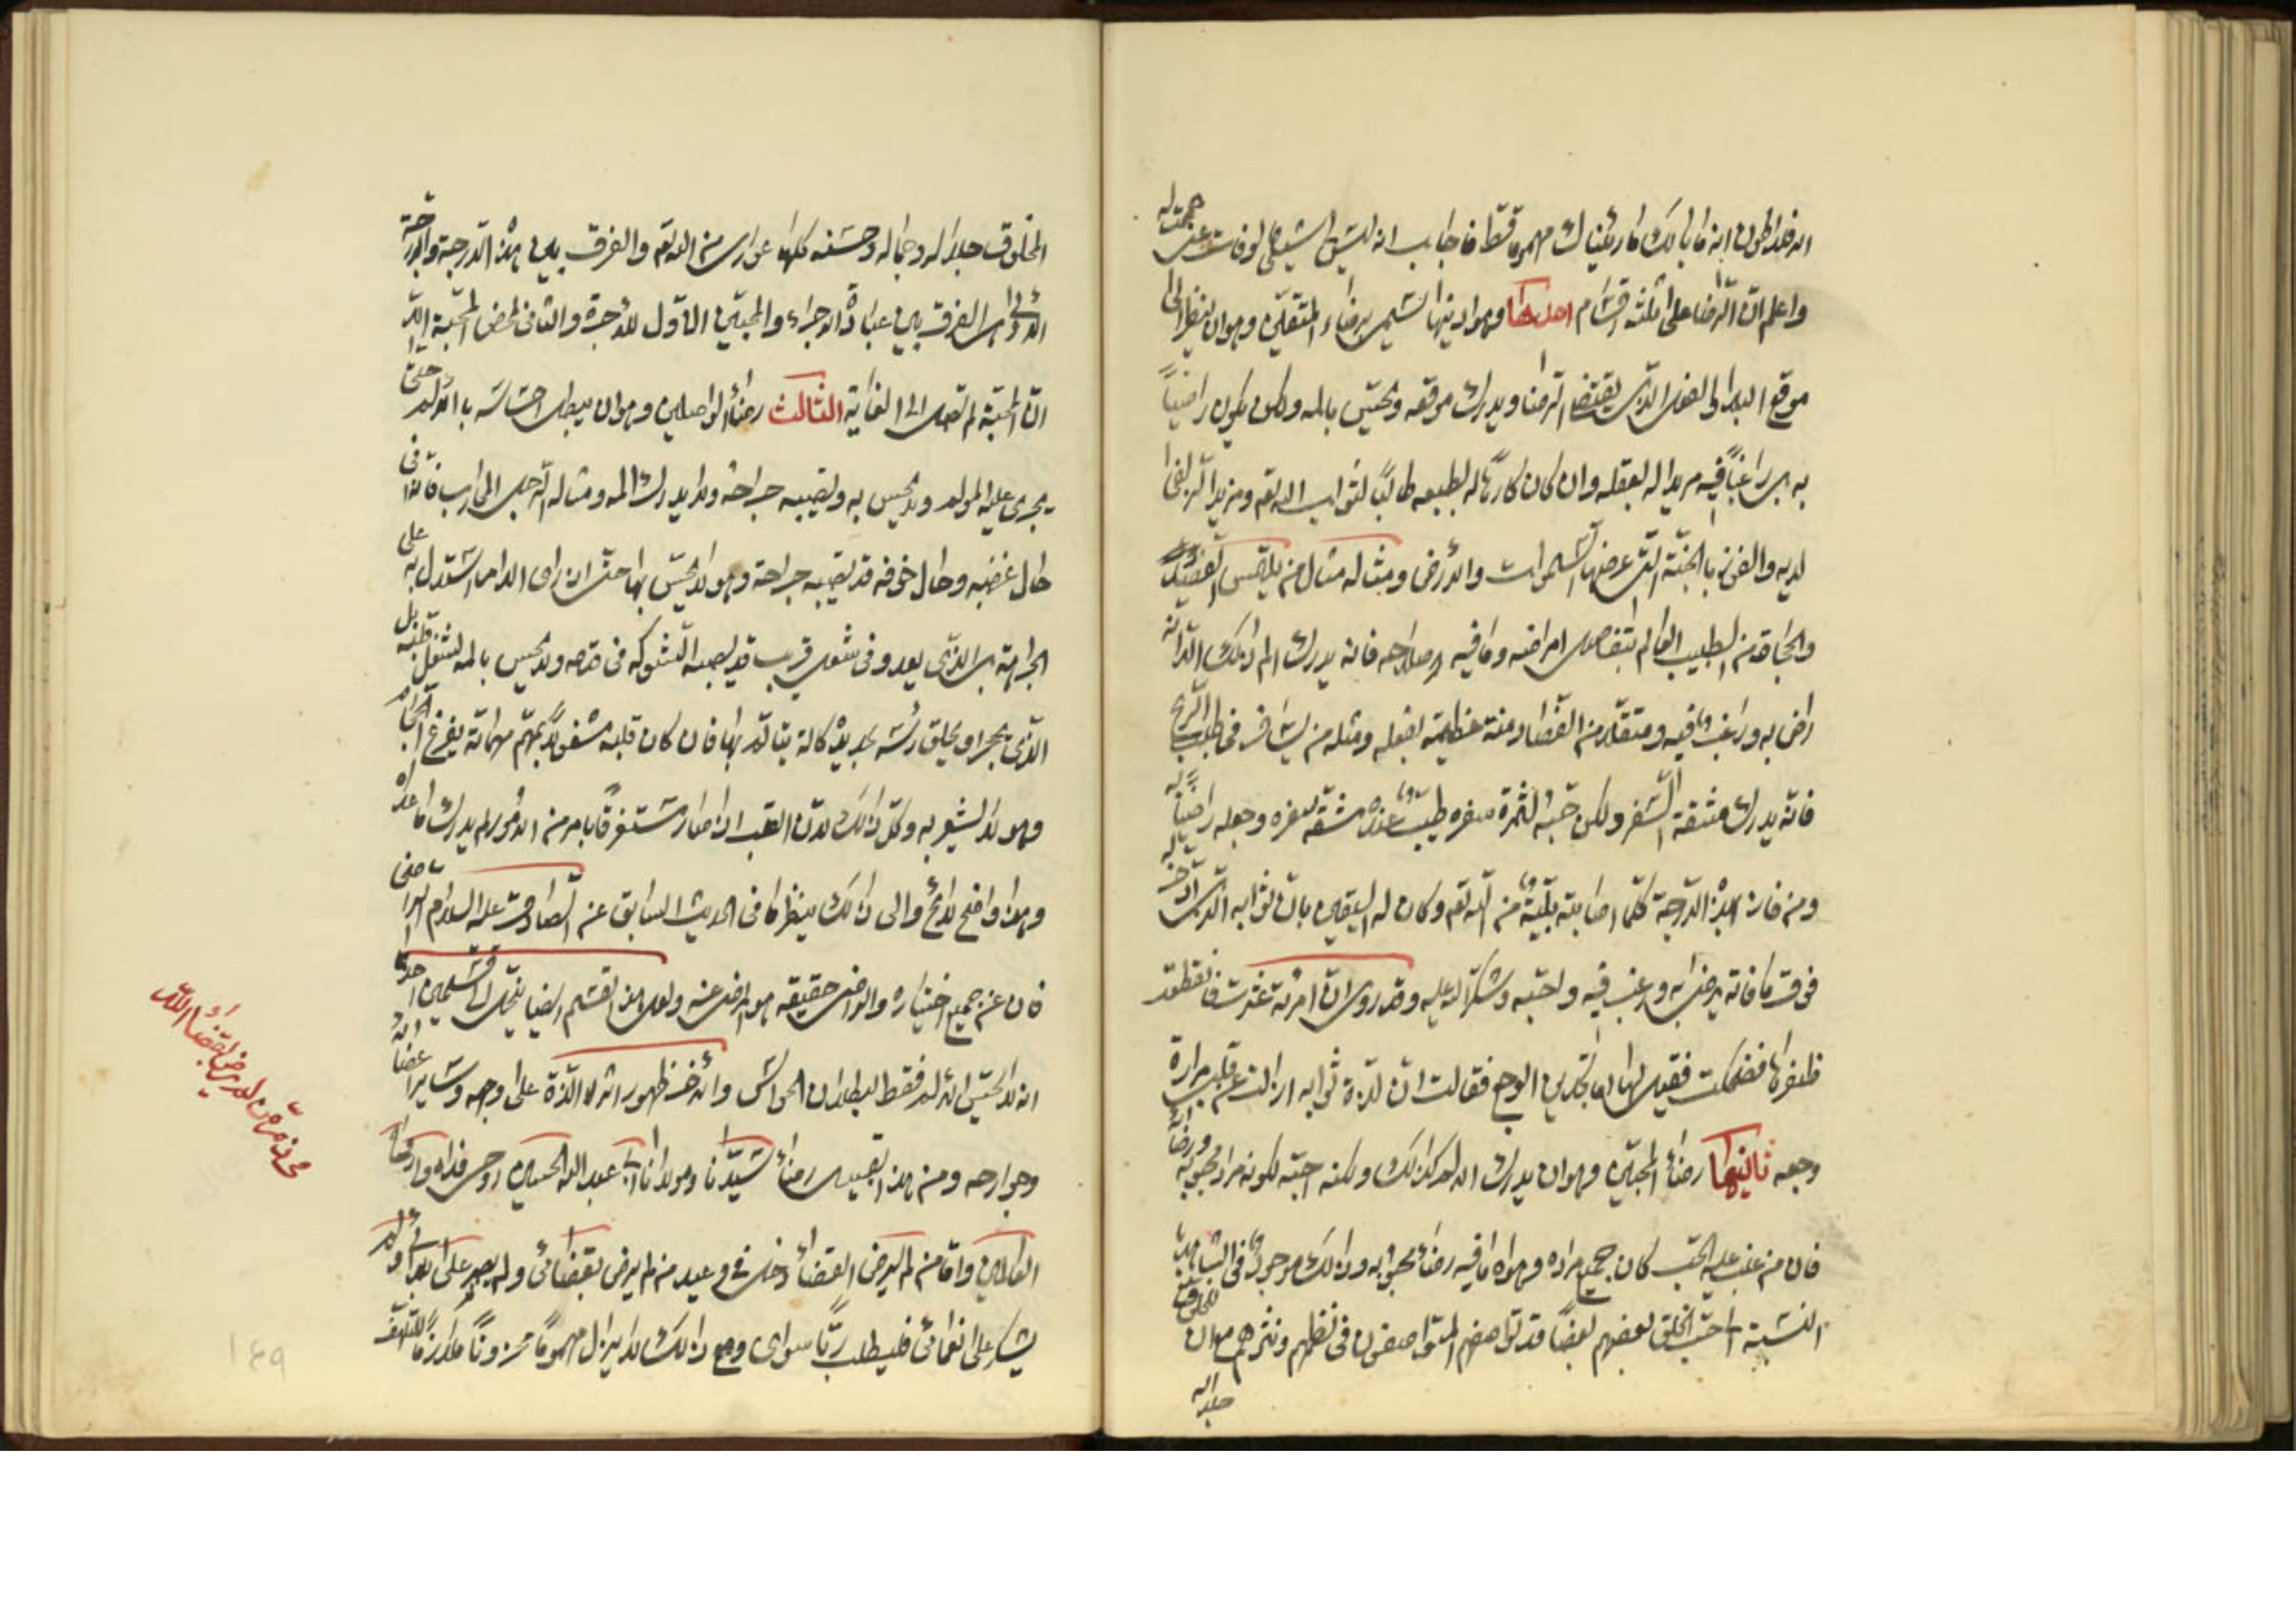 واعلم انّ الرّضا على ثلثة اقسام احدها وهو ادنيها تسمى برضاء المتقين وهو ان ينظر الى
موقع البلاء والفعل الذى يقتضى الرضا ويدرك موقعه ويحسّ بالمه ولكن يكون راضياً
به بل راغباً فيه مريدا له بعقله وان كان كارهاً له لطبعه طالباً لثواب الله تعم ومزيد الزلفى
لديه والفوز بالجنّة التى عرضها السموات والارض ومثاله مثال من يلتمس الفصد
والحجامة من الطبيب العالم بتفاصيل امراضه وما فيه اصلاحه فانه يدرك الم ذلك الا انّه
راض به وراغب فيه ومتقلد من الفصّاد منة عظيمة بفعله ومثله من يسافر فى طلب الرّبح
فانّه يدرك مشقة السّفر ولكن حبّه لثمرة سفره طيّب عنده مشقّة سفره وجعله راضياً به
ومن فاز بهذه الدّرجة كلّما اصابته بليّة من الله تعم وكان له اليقين بانّ ثوابه الذى ادّخر له
فوق ما فاته يرضى به ورغب فيه واحبّه وشكر الله عليه وقد روى انّ امرئة عثرت فانقطع
ظفرها فضحكت فقيل لها اما تجدين الوجع فقالت انّ لذّة ثوابه ازالت عن قلبى مرارة
وجعه ثانيها رضاء المحبّين وهو ان يدرك الالم كذلك ولكنه احبّه لكونه مراد محبوبه ورضاه
فان من غلب عليه الحبّ كان جميع مراده وهواه ما فيه رضاء محبوبه وذلك موجود فى الشاهد
النسبة الى حبّ الخلق بعضهم بعضاً قد تواصفه المتواصفون فى نظمهم ونثرهم
جلاله
المخلوق جلاله وجماله وحسنه كلها عوارى من الله تعم والفرق بين هذه الدّرجة والدّرجة
الاولى الفرق بين عبادة الاجراء والمحبّين الاوّل للاجرة والثانى لمحض المحبّة
انّ المحبّة لم تصل الى الغاية الثالث رضاء الواصلين وهو ان يبطل احساسه بالالم حتّى
يجرى عليه المولم ولا يحسّ به وتصيبه جراحة ولا يدرك المه ومثاله الرّجل المحارب فانّه فى
حال غضبه وحال خوفه قد تصيبه جراحة وهو لا يحسّ بها حتّى اذا راى الدم استدلّ به على
الجراحة بل الذى يعدو فى شغل قريب قد يصيبه الشوكة فى قدمه ولا يحسّ بالمه لشغل قلبه بل
الّذى يحجم او يحلق رأسه بحديدة كالّة يتألّم بها فان كان قلبه مشغولاً بمهمّ من مهمّاته يفرغ الحجّام
وهو لا يشعر به وكلّ ذلك لانّ القلب اذا صار مستغرقاً بامر من الامور لم يدرك ما عداه
وهذا واضح لائح والى ذلك ينظر ما فى الحديث السابق عن الصّادق عليه السلام
فان عن جميع اختياره والراضى حقيقة هو المرضى عنه ولعل هذا القسم ايضا ينحلّ الى قسمين احدها
انّه لا يحسّ الالم فقط لبطلان الحواسّ والاخر ظهور اثر اللّذة على وجهه وساير اعضائه
وجوارحه ومن هذا القبيل رضاء سيّدنا ومولانا ابى عبد الله الحسين روحى فداه وارواح
العالمين وامّا من لم يرض بالقضاء دخل فى وعيد من لم يرض بقضائى ولم يصبر على بلائى ولم
يشكر على نعمائى فليطلب ربّاً سواى ومع ذلك لا يزال مهموماً محزوناً
من لم يرض بقضاء اللّه
١٤٩